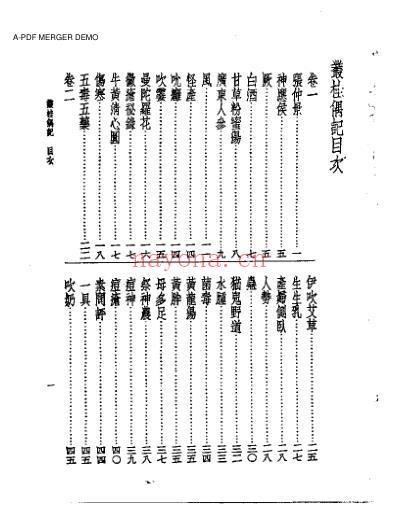 A-PDF MERGER DEMO
叢桂偶記目次
卷一
張仲景……一
神應侯……五
厥……五
白酒……七
甘草粉蜜湯……八
廣東人參……九
風……一
怪產……一四
吹雲……一五
曼陀羅花……一六
黴瘡祕錄……一七
牛黃清心圓……一七
傷寒……一八
五毒五藥……二二
卷二
叢桂偶記 目次
伊吹艾草……二五
生生乳……二六
產婦側臥……二八
人勢……二八
蟲……三〇
猫鬼野道……三二
水腫……三三
菌毒……三四
黃龍湯……三五
黃胖……三五
母多足……三六
祭神農……三八
痘神……三九
痘瘡……四〇
素問評……四四
一具……四五
吹奶……四五
一
nayona.cn